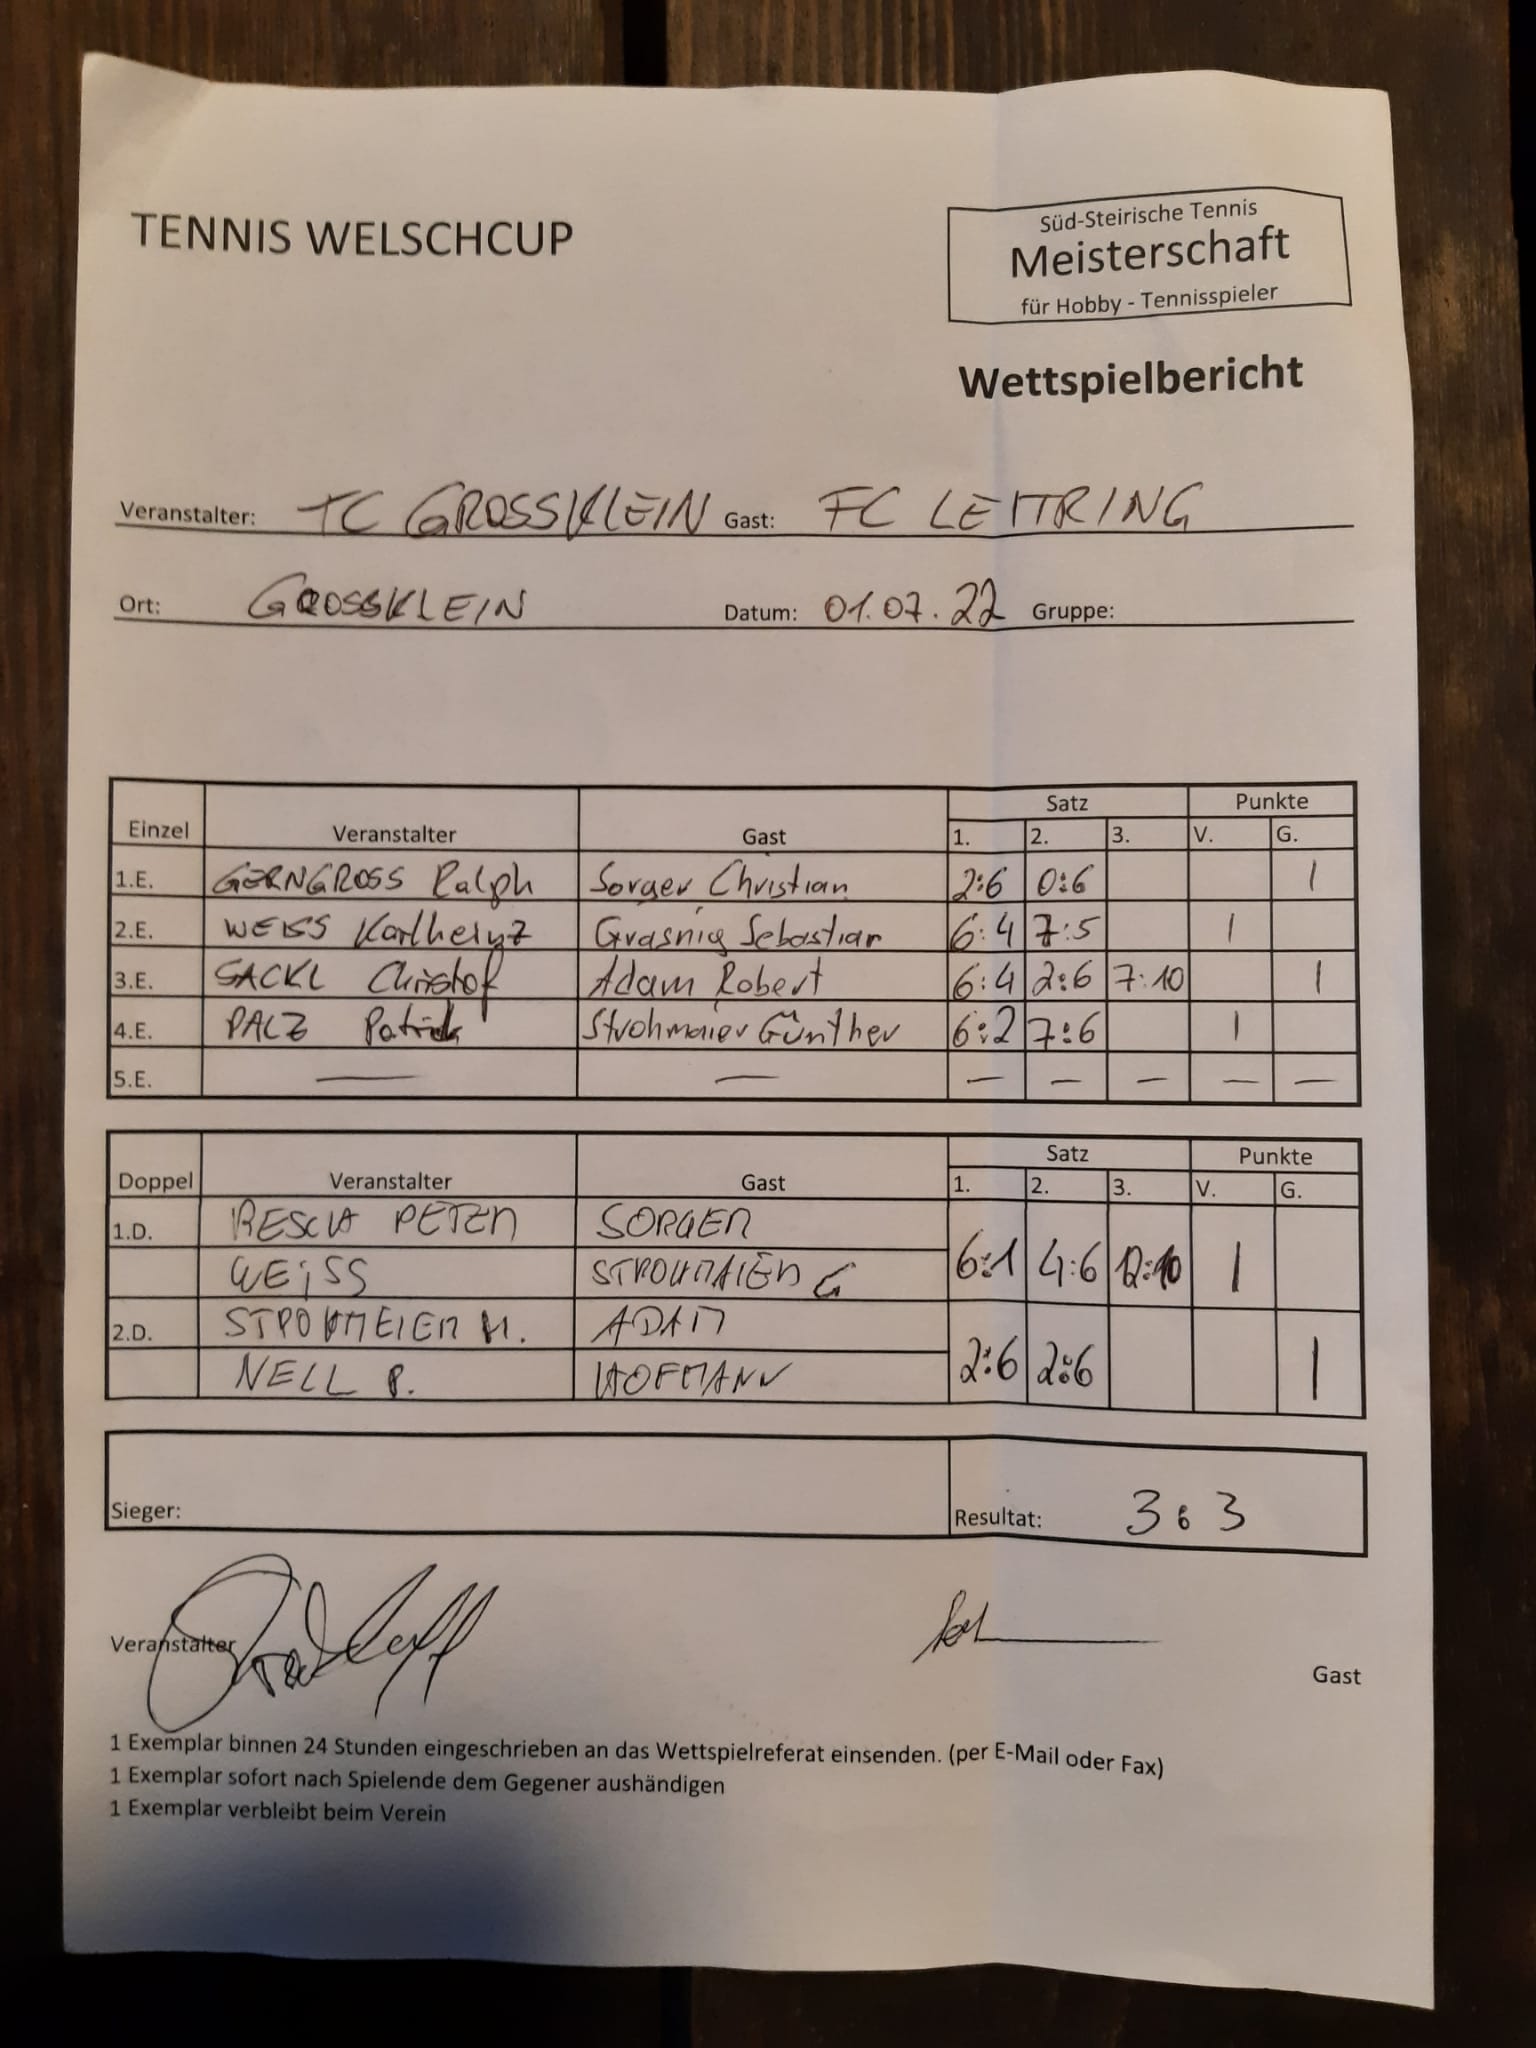 TENNIS WELSCHCUP
Süd-Steirische Tennis
Meisterschaft
für Hobby - Tennisspieler
Wettspielbericht
Veranstalter: TC GROSSKLEIN Gast: FC LEITRING
Ort: GROSSKLEIN Datum: 01.07.22 Gruppe:
Satz Punkte
Einzel Veranstalter Gast 1. 2. 3. V. G.
1.E. GERNGROSS Ralph Sorger Christian 2:6 0:6 1
2.E. WEISS Karlheinz Grasnig Sebastian 6:4 7:5 1
3.E. SACKL Christof Adam Robert 6:4 2:6 7:10 1
4.E. PALZ Patrick Strohmaier Günther 6:2 7:6 1
5.E. — — — — — — —
Satz Punkte
Doppel Veranstalter Gast 1. 2. 3. V. G.
1.D. RESCH PETER SORGER
WEISS STROHMAIER G 6:1 4:6 12:10 1
2.D. STROHMEIER H. ADAM
NELL P. HOFMANN 2:6 2:6 1
Sieger: Resultat: 3:3
Veranstalter
Gast
1 Exemplar binnen 24 Stunden eingeschrieben an das Wettspielreferat einsenden. (per E-Mail oder Fax)
1 Exemplar sofort nach Spielende dem Gegener aushändigen
1 Exemplar verbleibt beim Verein